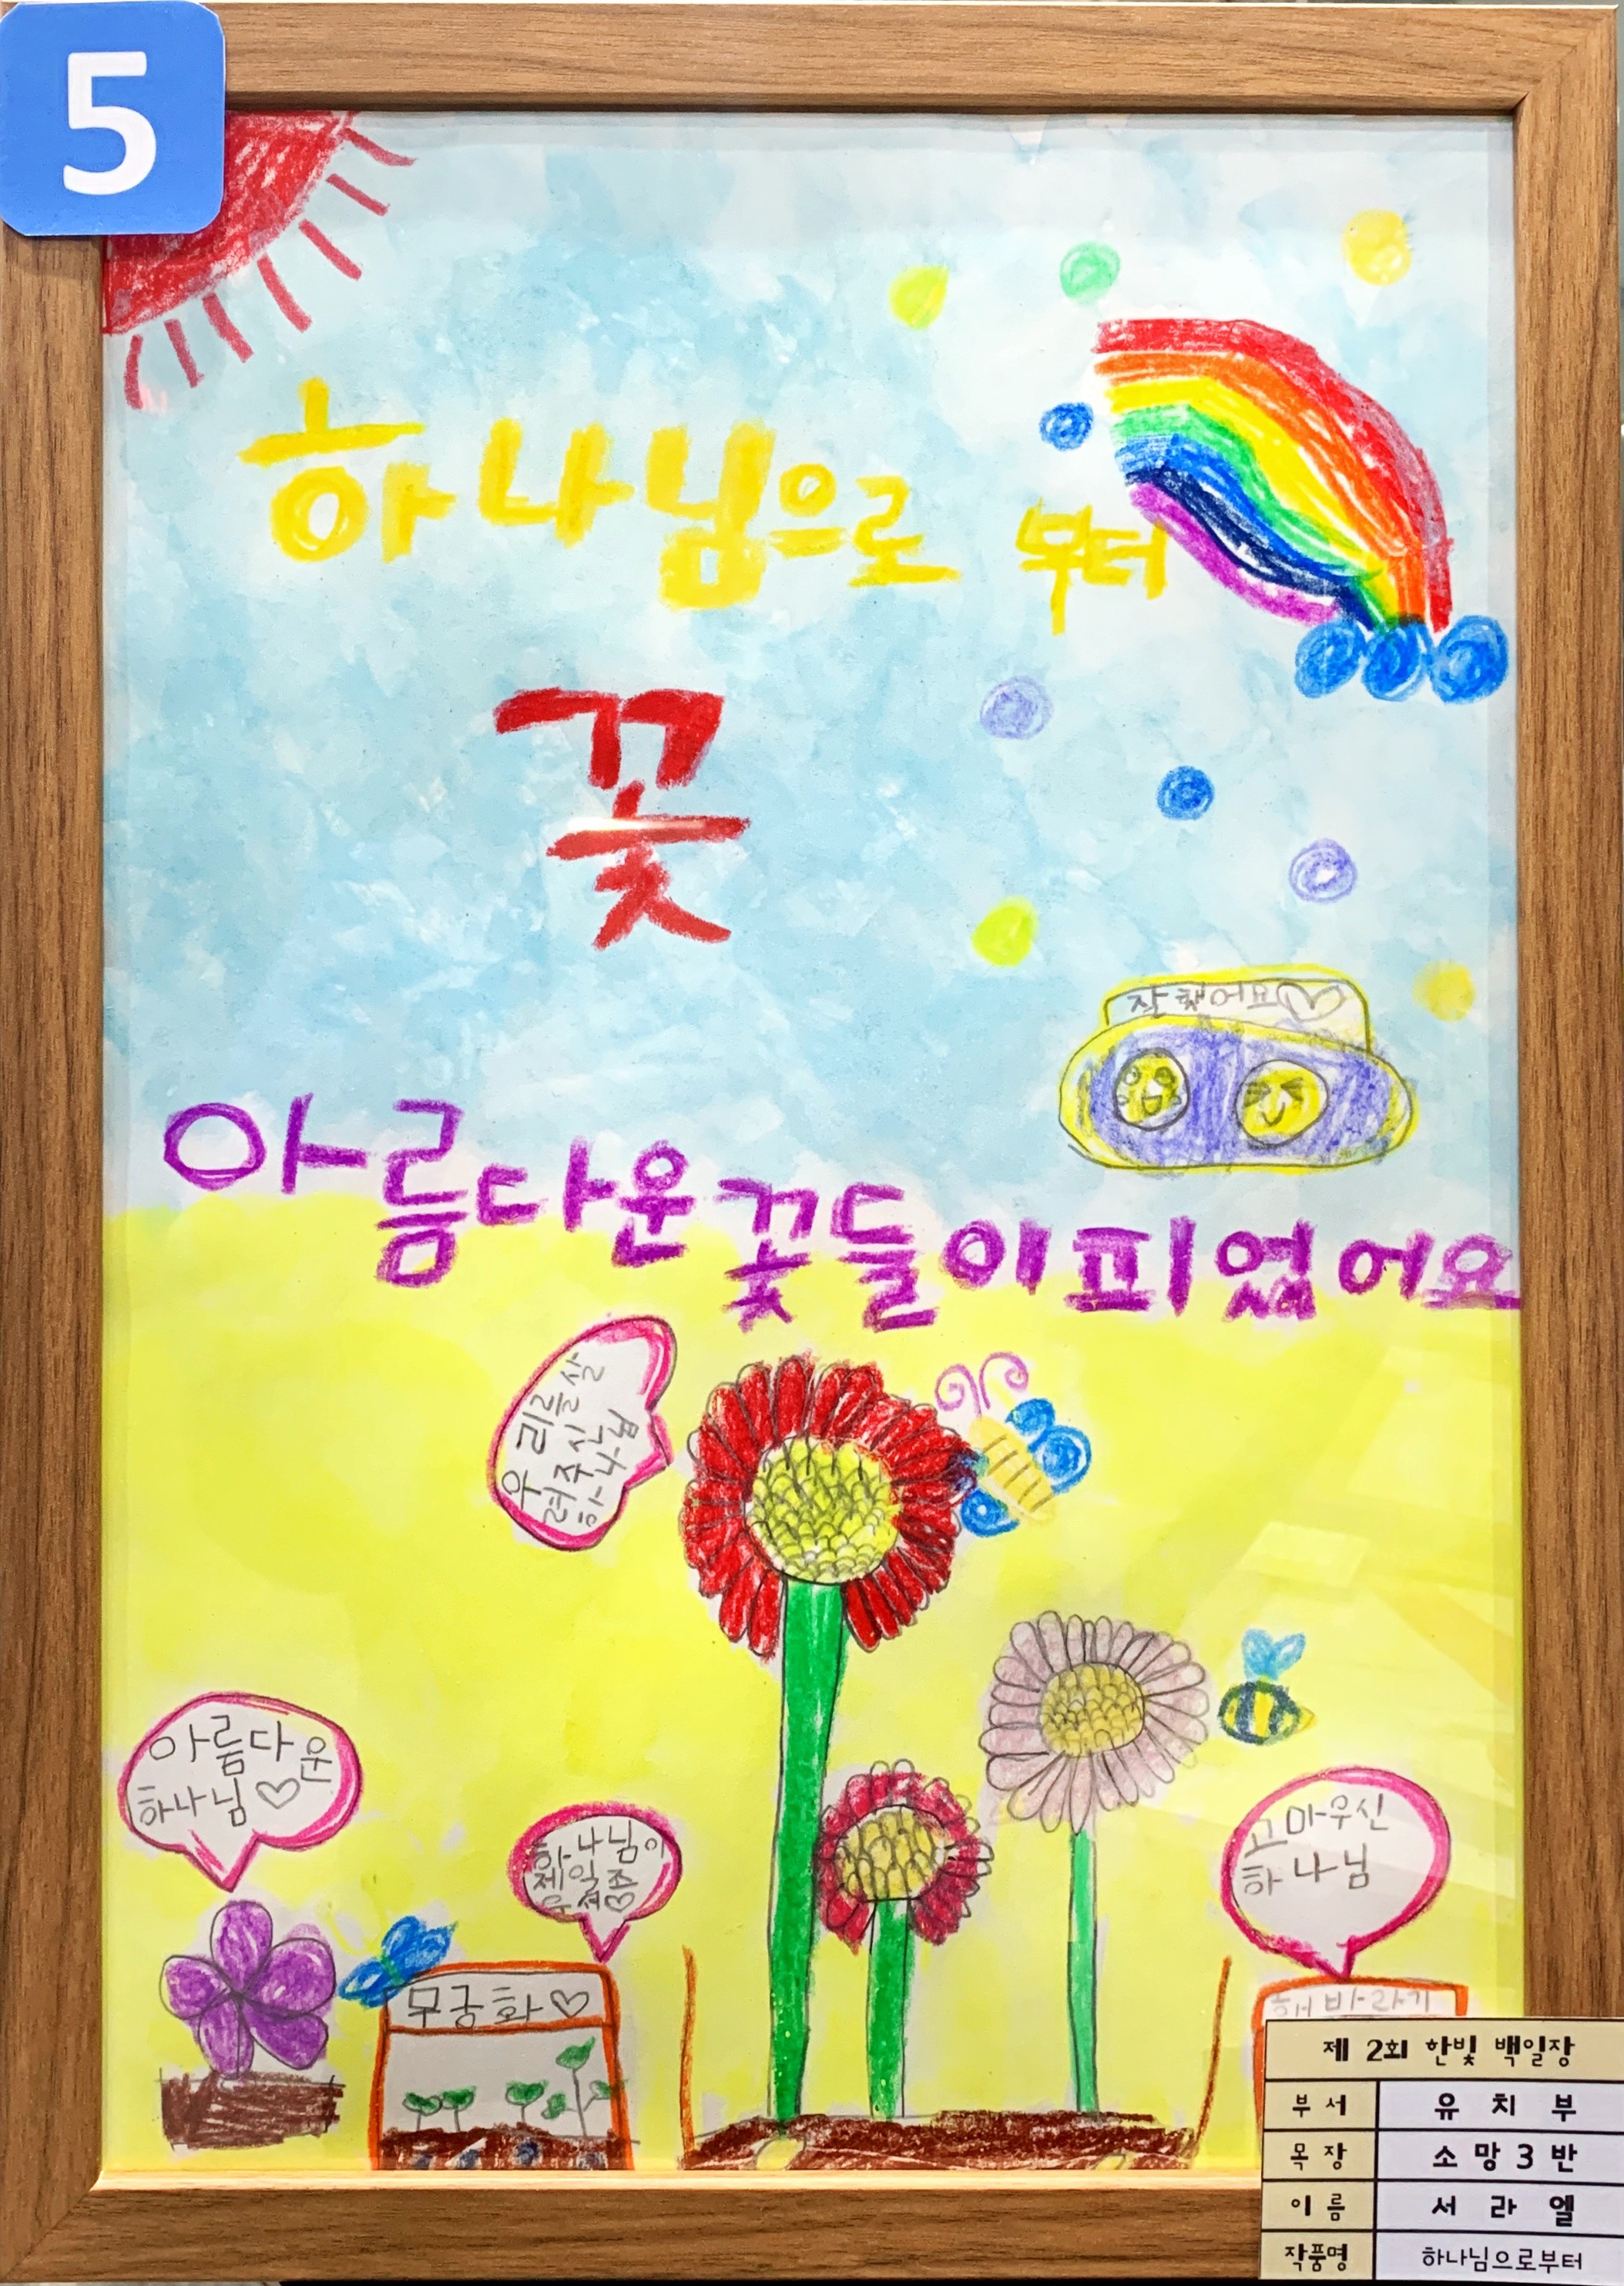 5
하나님으로 부터
꽃
잘했어요♡
아름다운꽃들이피었어요
우리를살
려주신
하나님
아름다운
하나님♡
하나님이
제일
고마우신
하나님
무궁화♡
해바라기
제 2회 한빛 백일장
부서 유치부
목장 소망3반
이름 서라엘
작품명 하나님으로부터